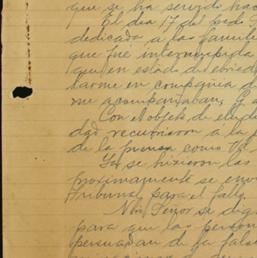 que se ha servido hac
El dia 17 del pdo
dedicada a las famili
que fue interrumpida
que en estado de ebried
tarme en compañia d
me acompañaban, y
Con el objeto de elud
recurrieron a la p
de la prensa como
se hicieron las
proximamente se env
Tribunal para el fallo.
Señor se dig
para que las person
persuadan de la fals